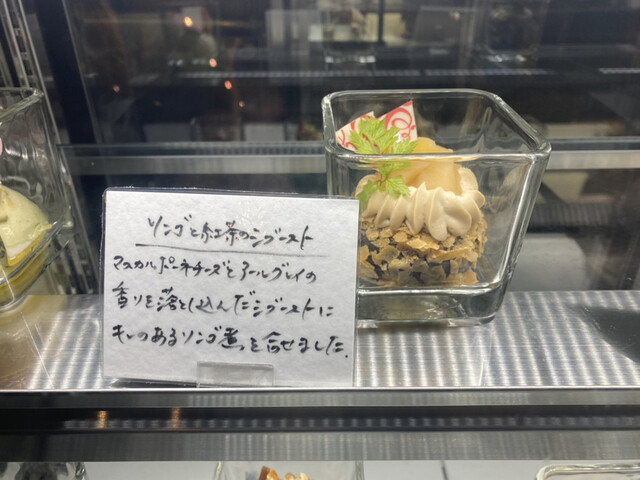 リンゴと紅茶のシブースト
マスカルポーネチーズとアールグレイの
香りを落とし込んだシブーストに
キレのあるリンゴ煮を合せました。